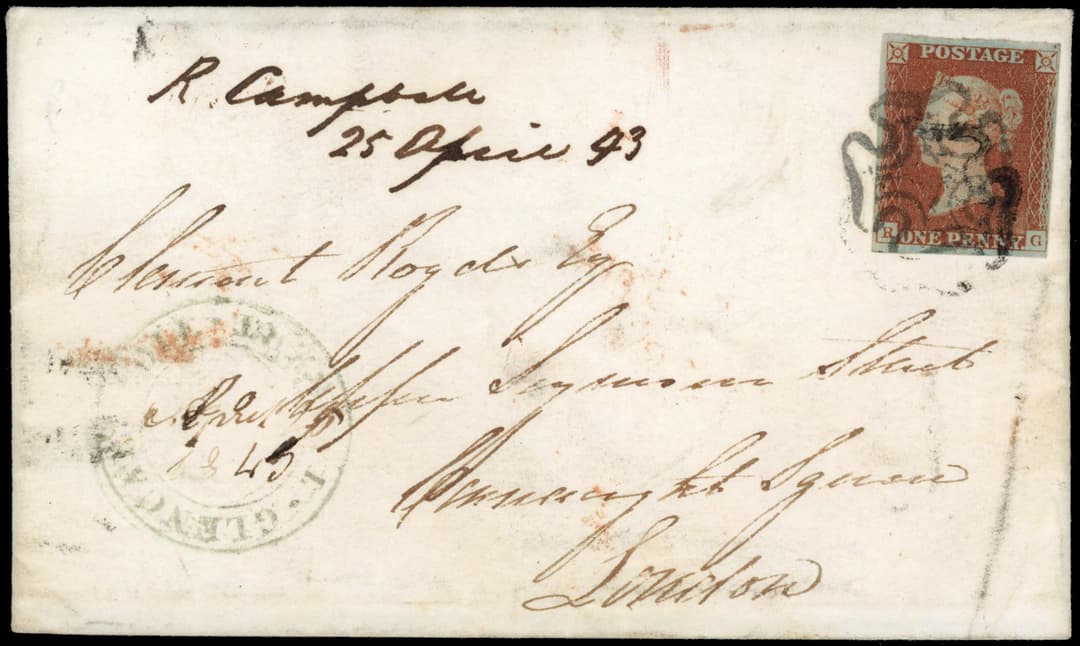 R Campbell
25 April 43
POSTAGE
R ONE PENNY G
Clement Royds Esq
Seymour Street
1843
GLENCA
Connaught Square
London